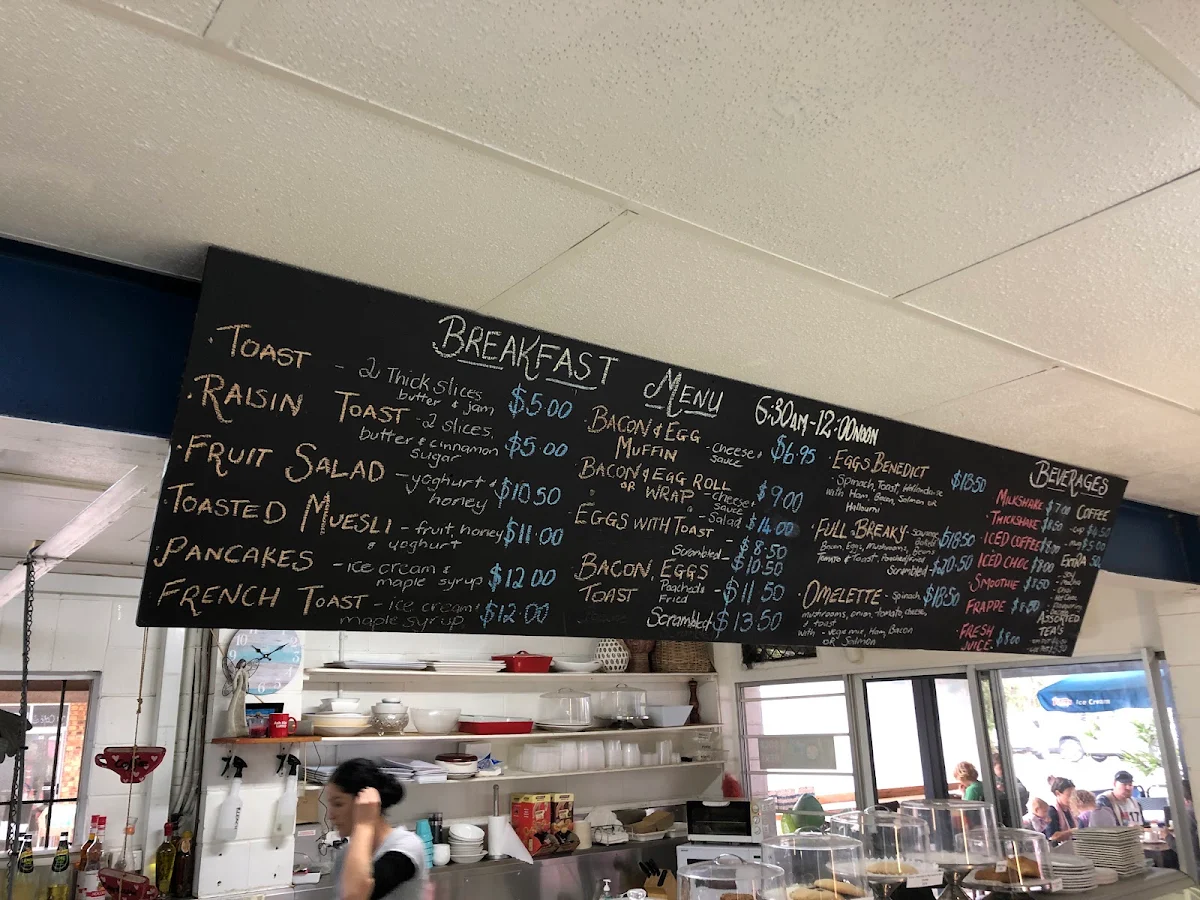 BREAKFAST MENU 6:30AM-12:00NOON
·TOAST - 2 Thick slices $5.00
butter & jam
·RAISIN TOAST - 2 slices, $5.00
butter & cinnamon
sugar
·FRUIT SALAD - yoghurt & $10.50
honey
·TOASTED MUESLI - fruit, honey $11.00
& yoghurt
·PANCAKES - ice cream & $12.00
maple syrup
·FRENCH TOAST - ice cream & $12.00
maple syrup
·BACON & EGG
MUFFIN - cheese & $6.95
sauce
BACON & EGG ROLL
OR WRAP - cheese & $9.00
sauce
- Salad $14.00
·EGGS WITH TOAST - $8.50
Scrambled - $10.50
BACON, EGGS
TOAST Poached & $11.50
Fried
Scrambled $13.50
·EGGS BENEDICT $18.50
- Spinach, Toast, Hollandaise
with Ham, Bacon, Salmon or
Halloumi
·FULL BREAKY - $18.50
Bacon, Eggs, Mushrooms, Beans
Tomato & Toast,
Scrambled - $20.50
·OMELETTE - Spinach, $18.50
mushrooms, onion, tomato, cheese,
& toast
with - vege mix, Ham, Bacon
or Salmon
BEVERAGES
MILKSHAKE $7.00
THICKSHAKE $8.50
ICED COFFEE $8.00
ICED CHOC $8.00
SMOOTHIE $8.50
FRAPPE $8.50
FRESH
JUICE $8.00
COFFEE
- cup $4.50
- mug $5.00
EXTRA
- Soy
- Chai
ASSORTED
TEA'S
Ice Cream